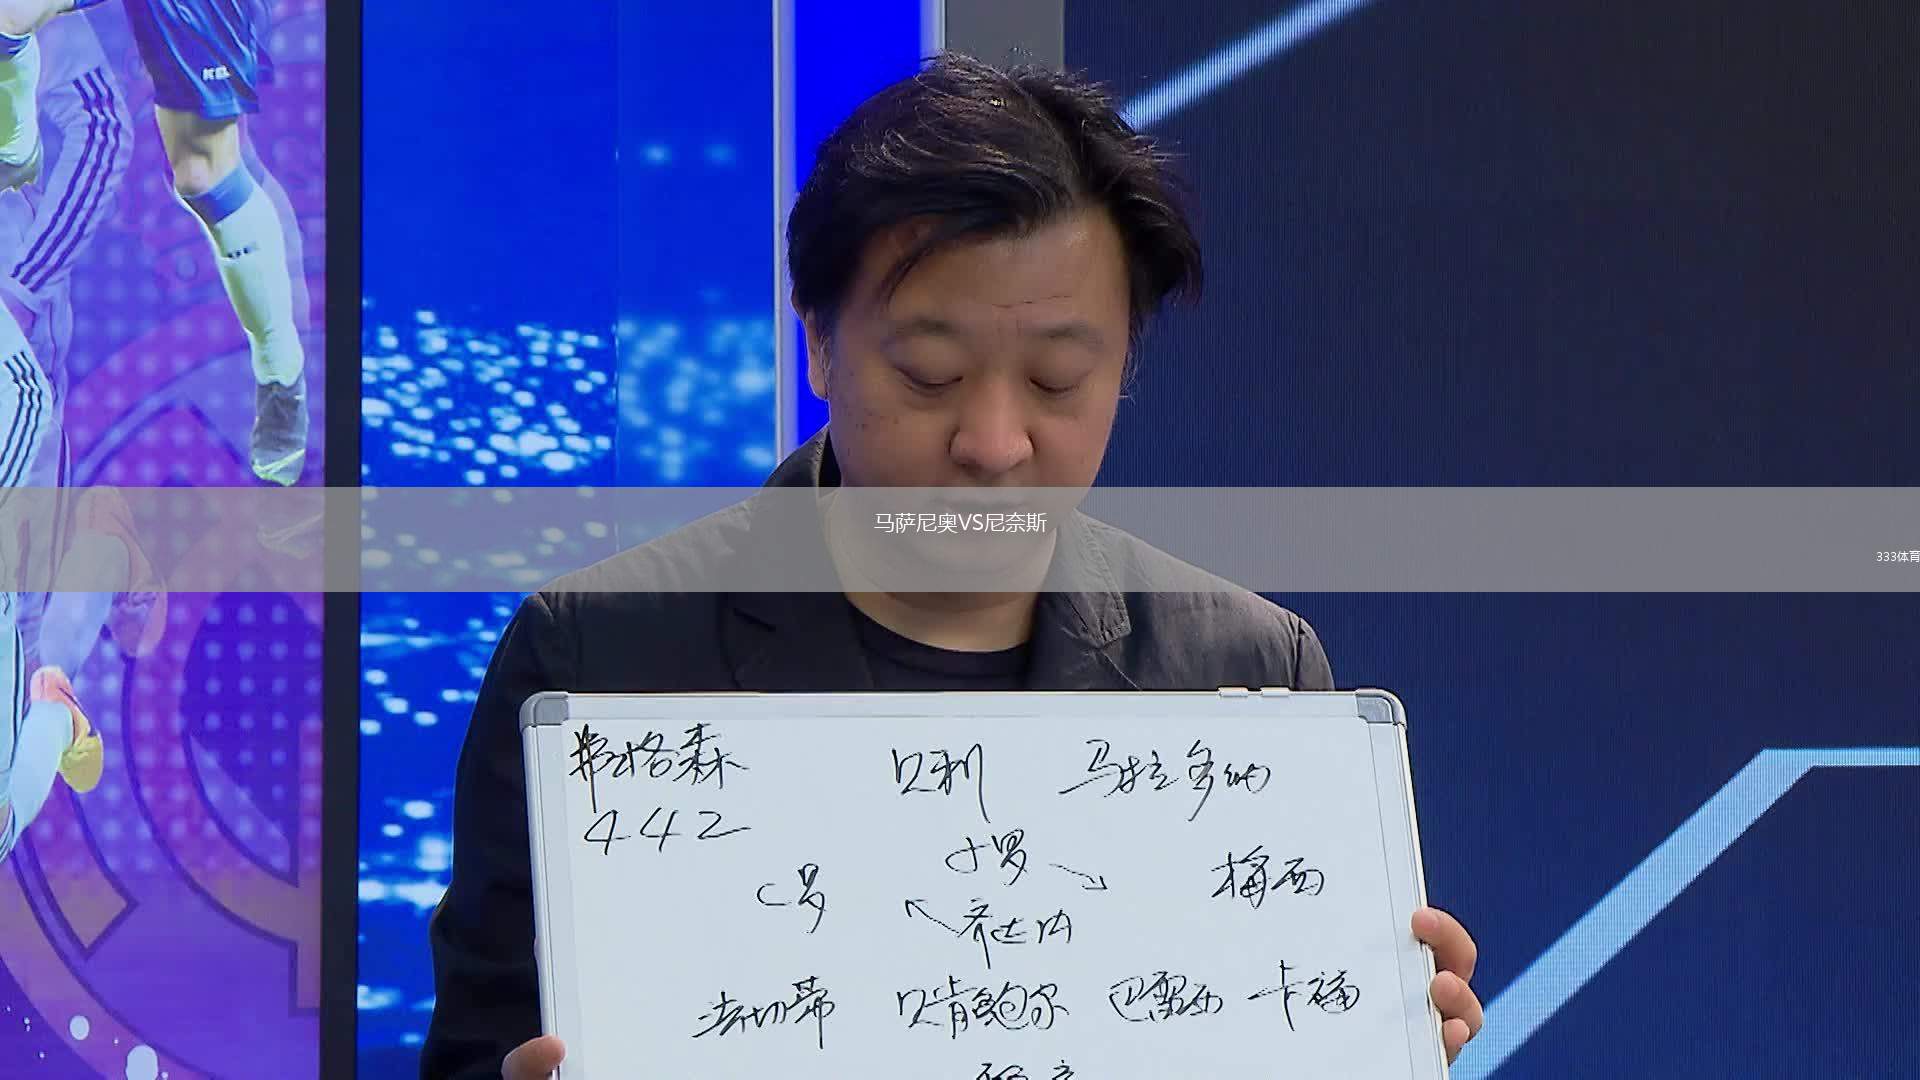 马萨尼奥VS尼奈斯
333体育
弗格森 贝利 马拉多纳
442
小罗
C罗 梅西
齐达内
法切蒂 贝肯鲍尔 巴雷西 卡福